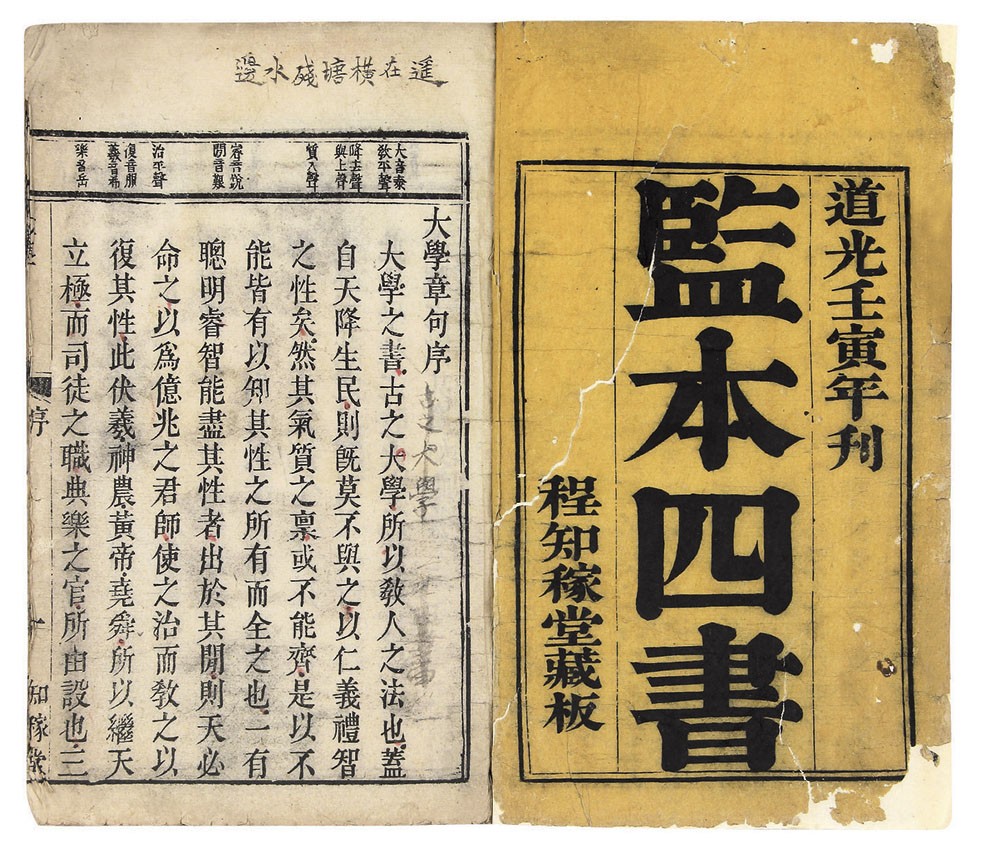 道光壬寅年刊
監本四書
程知稼堂藏板
遥在橫塘殘水邊
大音泰
教平聲
降去聲
與上聲
質入聲
睿音銳
閒音艱
治平聲
復音服
羲音希
樂音岳
大學章句序
大學之書古之大學所以教人之法也蓋
自天降生民則旣莫不與之以仁義禮智
之性矣然其氣質之禀或不能齊是以不
能皆有以知其性之所有而全之也一有
聰明睿智能盡其性者出於其閒則天必
命之以爲億兆之君師使之治而教之以
復其性此伏羲神農黃帝堯舜所以繼天
立極而司徒之職典樂之官所由設也三
之大學
序
知稼堂